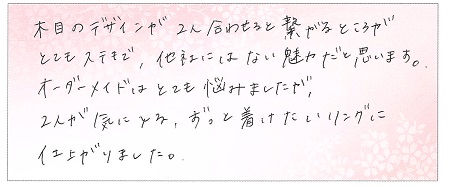 木目のデザインが2人合わせると繋がるところが
とてもステキで、他社にはない魅力だと思います。
オーダーメイドはとても悩みましたが、
2人が気に入る、ずっと着けたいリングに
仕上がりました。